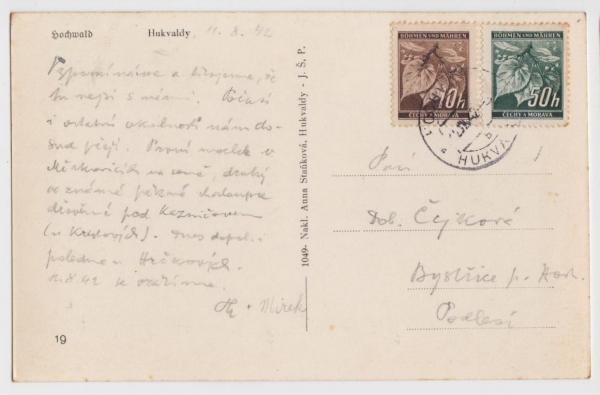 Hochwald Hukvaldy 11.8.42
Vzpomínáme a litujeme, že
tu nejsi s námi. Počasí
i ostatní okolnosti nám do-
sud přejí. První nocleh v
na seně, druhý
ve známé pěkné chaloupce
dřevěné pod Kazničovem
(u ). Dnes dopol. i
poledne u
11.8.42 se
+ Mirek
19
1049- Nakl. Anna Staňková, Hukvaldy - J. Š. P.
BÖHMEN UND MÄHREN
10h
ČECHY A MORAVA
BÖHMEN UND MÄHREN
50h
ČECHY A MORAVA
HUKVA
Paní
Dob. Čejková
Bystřice p. Host.
Podlesí